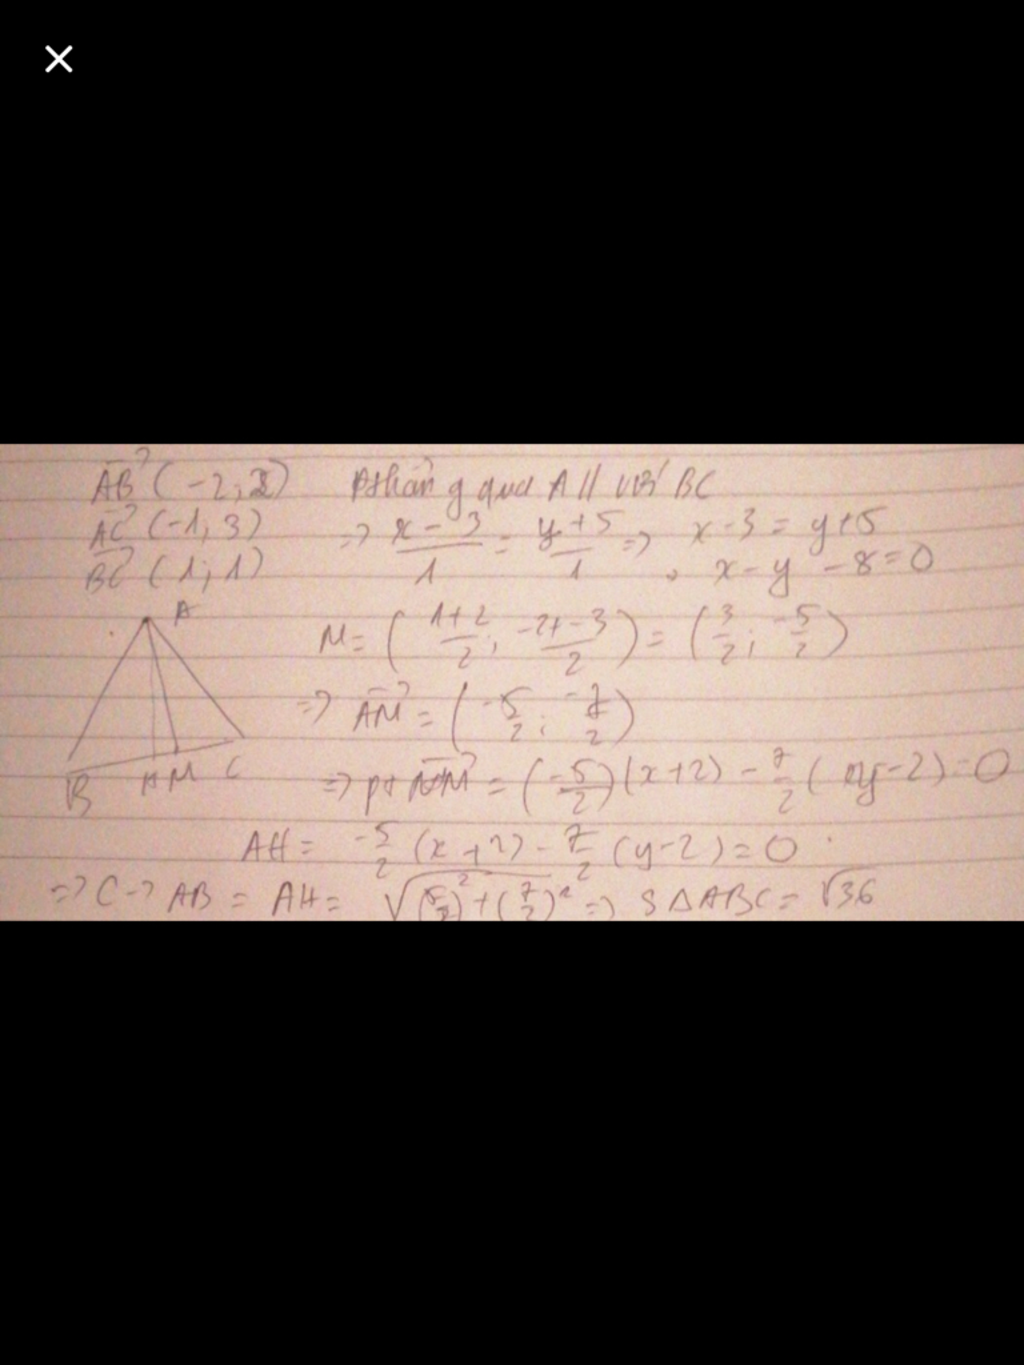 AB (-2; 2) Pt thẳng qua A // với BC
AC (-1, 3) => x - 3 / 1 = y + 5 / 1 => x - 3 = y + 5
BC (1; 1) x - y - 8 = 0
A
M = ( 1+2 / 2 ; -2+-3 / 2 ) = ( 3/2 ; -5/2 )
=> AM = ( -5/2 ; -7/2 )
B H M C
=> pt AM = ( -5/2 ) (x+2) - 7/2 ( y-2) = 0
AH = -5/2 (x+2) - 7/2 (y-2) = 0
=> C -> AB = AH = √(5/2)² + (7/2)² => S ΔABC = √36